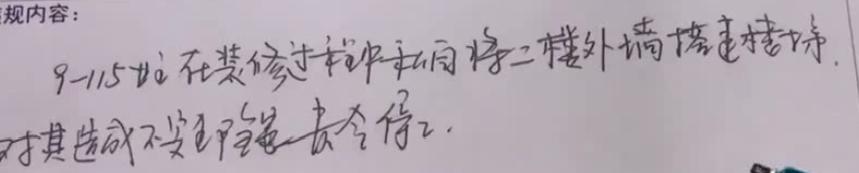 规内容:
9-115业主在装修过程中私自将二楼外墙搭建楼梯.
对其造成不安全隐患 责令停工.